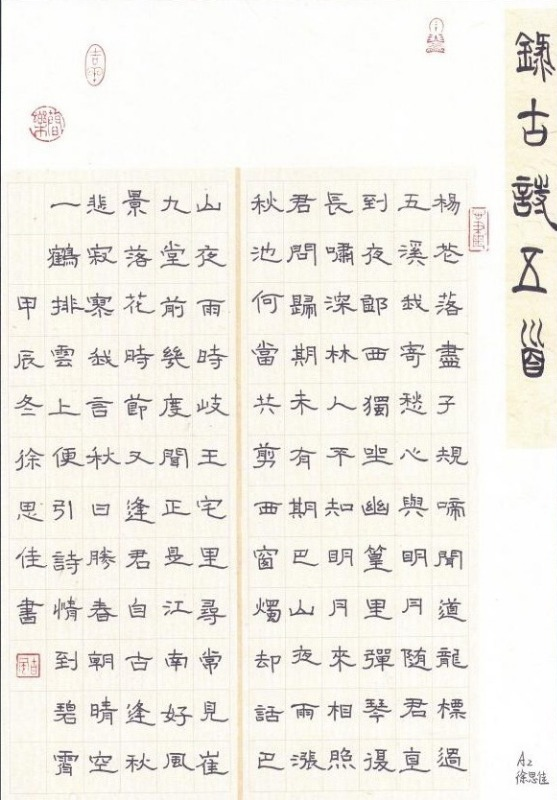 錄古詩五首
楊花落盡子規啼聞道龍標過
五溪我寄愁心與明月随君直
到夜郎西獨坐幽篁里彈琴復
長嘯深林人不知明月來相照
君問歸期未有期巴山夜雨漲
秋池何當共剪西窗燭却話巴
山夜雨時岐王宅里尋常見崔
九堂前幾度聞正是江南好風
景落花時節又逢君自古逢秋
悲寂寥我言秋日勝春朝晴空
一鶴排雲上便引詩情到碧霄
甲辰冬徐思佳書
A2
徐思佳